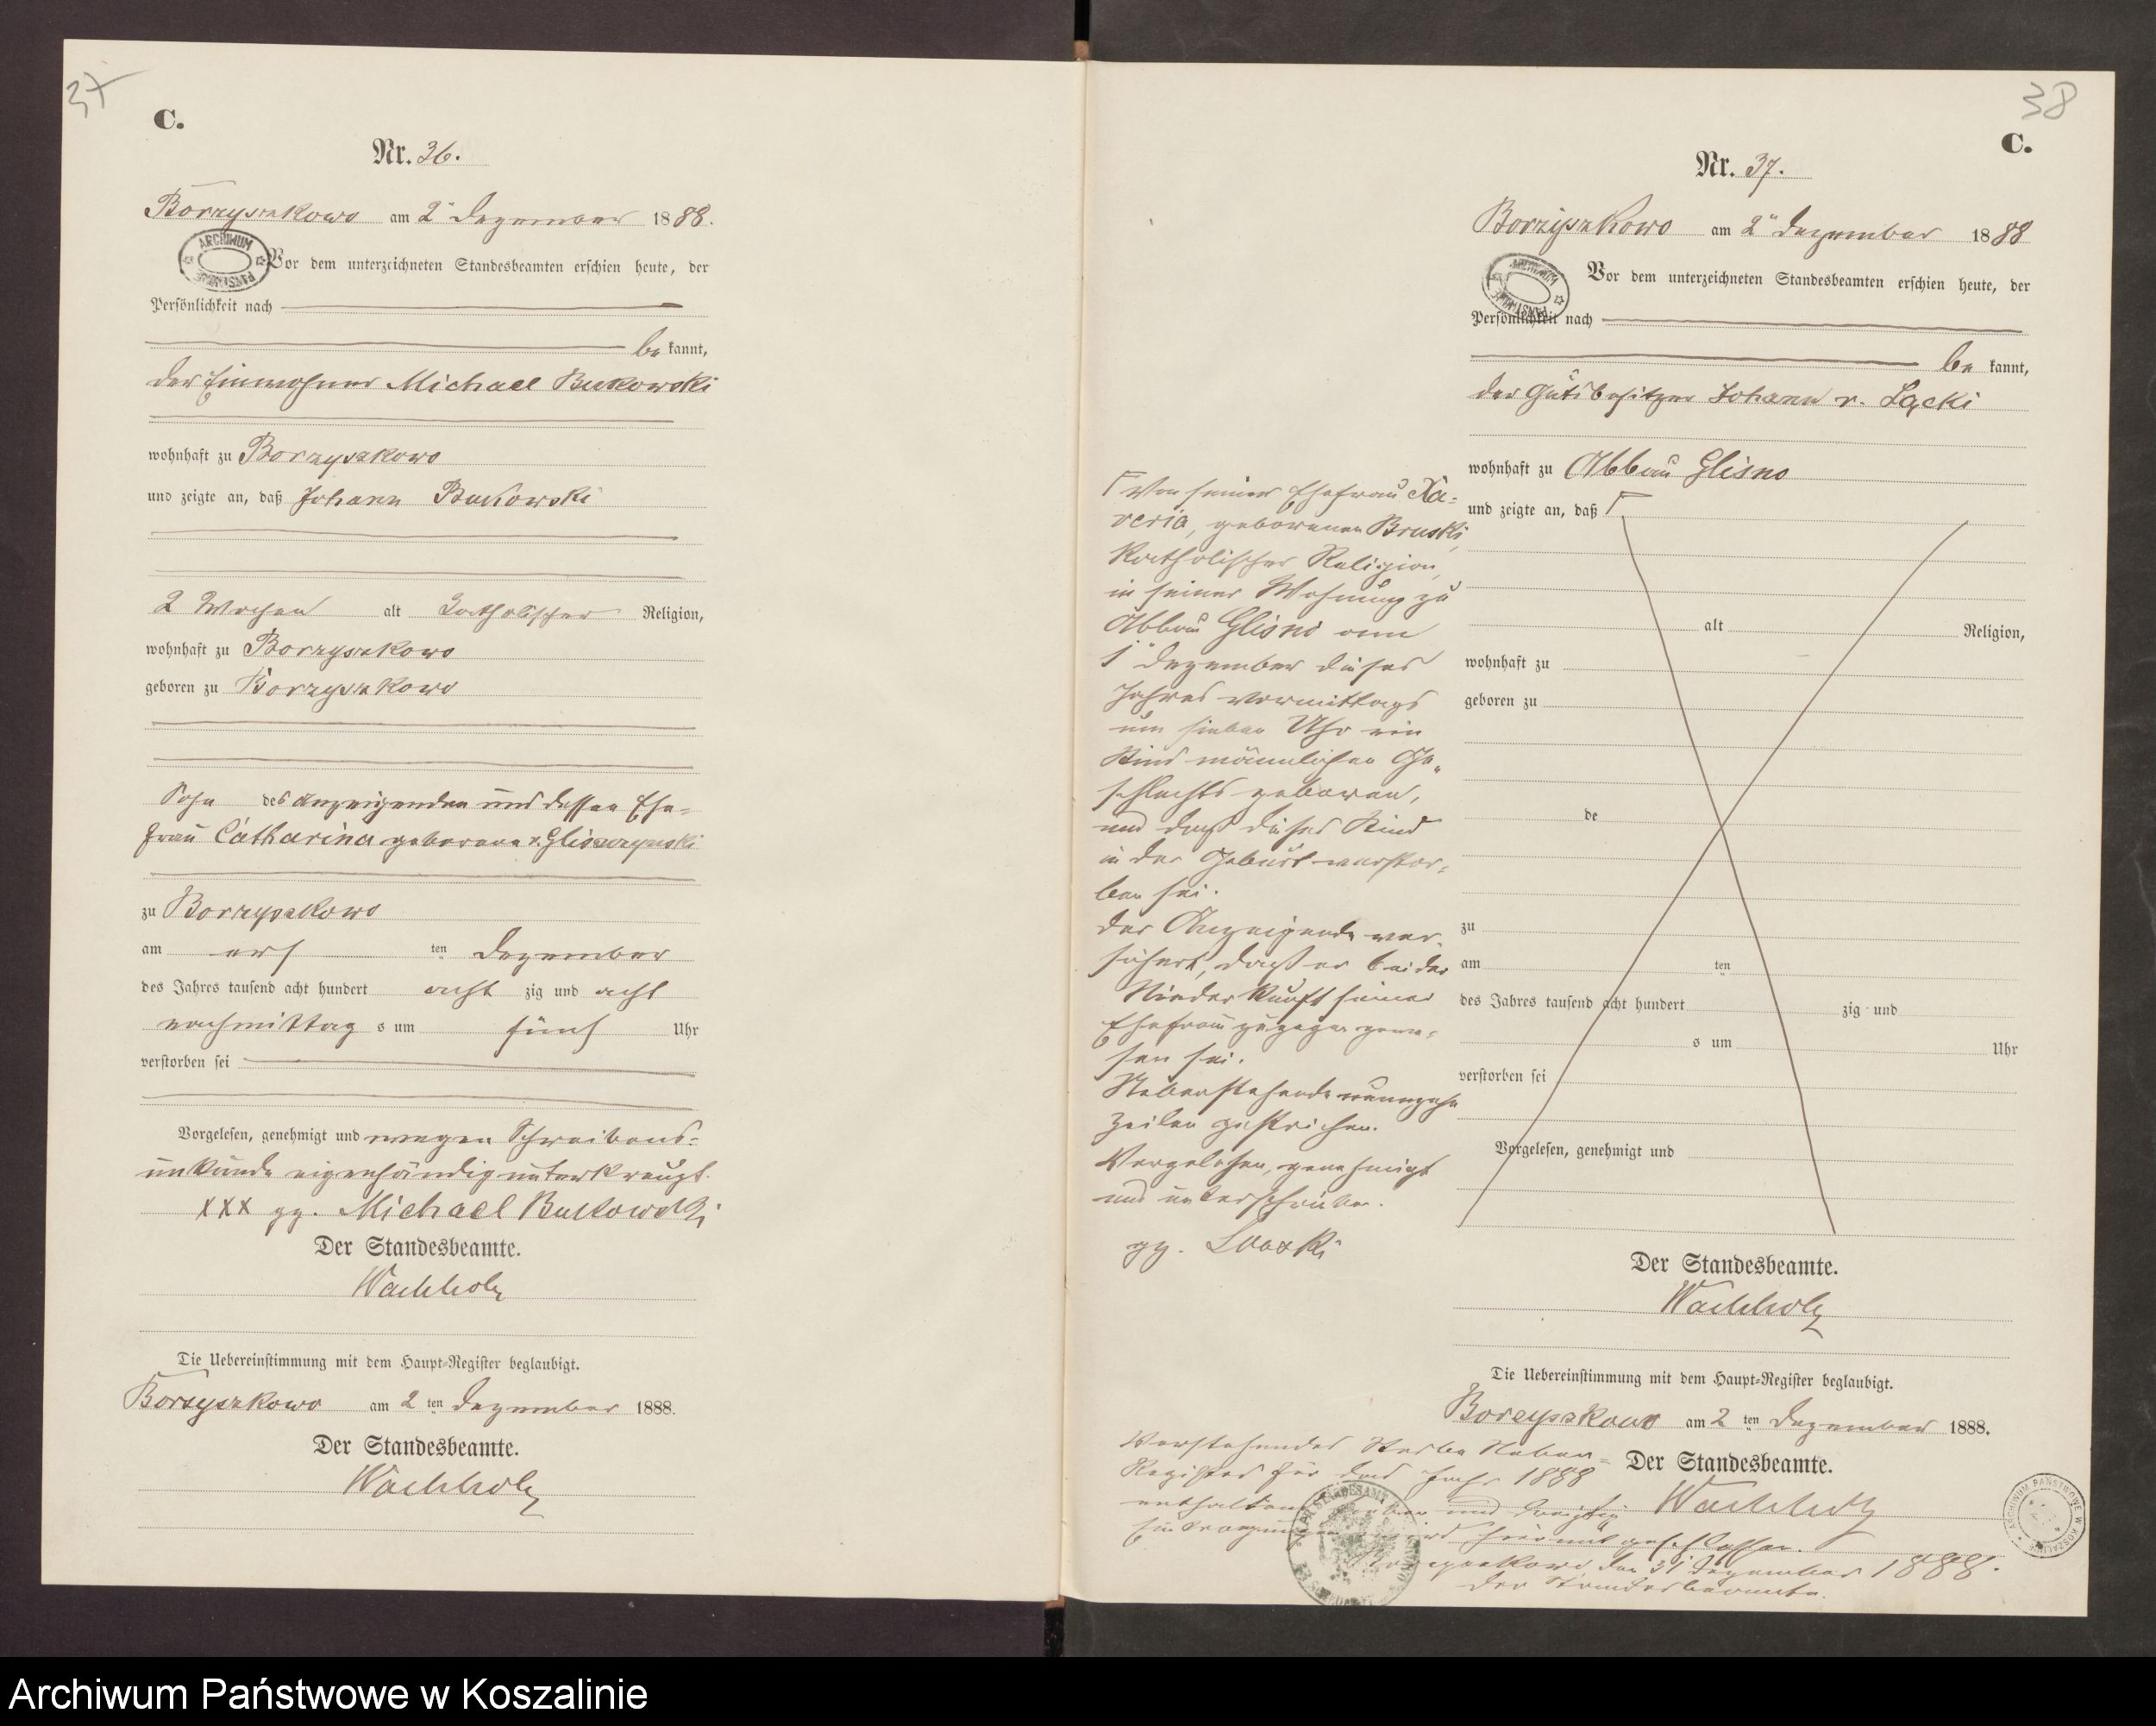 37
C.
Nr. 36.
Borzyszkowo am 2ⁿ Dezember 1888.
ARCHIWUM PAŃSTWOWE
Vor dem unterzeichneten Standesbeamten erschien heute, der
Persönlichkeit nach
be kannt,
der Einwohner Michael Bukowski
wohnhaft zu Borzyszkowo
und zeigte an, daß Johann Bukowski
2 Wochen alt katholischer Religion,
wohnhaft zu Borzyszkowo
geboren zu Borzyszkowo
Sohn des Anzeigenden und dessen Ehe=
frau Catharina geborene v. Gliszczynski
zu Borzyszkowo
am ers ten Dezember
des Jahres tausend acht hundert acht zig und acht
nachmittag s um fünf Uhr
verstorben sei
Vorgelesen, genehmigt und wegen Schreibens=
unkunde eigenhändig unterkreuzt.
XXX gz. Michael Bukowski
Der Standesbeamte.
Wachholz
Die Uebereinstimmung mit dem Haupt=Register beglaubigt.
Borzyszkowo am 2 ten Dezember 1888.
Der Standesbeamte.
Wachholz
38
C.
Nr. 37.
Borzyszkowo am 2ⁿ Dezember 1888
ARCHIWUM PAŃSTWOWE
Vor dem unterzeichneten Standesbeamten erschien heute, der
Persönlichkeit nach
be kannt,
der Gutsbesitzer Johann v. Łącki
wohnhaft zu Abbau Glisno
und zeigte an, daß Γ
alt Religion,
wohnhaft zu
geboren zu
de
zu
am ten
des Jahres tausend acht hundert zig und
s um Uhr
verstorben sei
Vorgelesen, genehmigt und
Γ von seiner Ehefrau Xa=
veria, geborenen Bruski,
katholischer Religion,
in seiner Wohnung zu
Abbau Glisno am
1ⁿ Dezember dieses
Jahres vormittags
um sieben Uhr ein
Kind männlichen Ge„
schlechts geboren,
und daß dieses Kind
in der Geburt verstor=
ben sei.
Der Anzeigende ver=
sichert, daß er bei der
Niederkunft seiner
Ehefrau zugegen gewe=
sen sei.
Nebenstehende neunzehn
Zeilen gestrichen.
Vorgelesen, genehmigt
und unterschrieben.
gz.
Der Standesbeamte.
Wachholz
Die Uebereinstimmung mit dem Haupt=Register beglaubigt.
Borzyszkowo am 2 ten Dezember 1888.
Der Standesbeamte.
Wachholz
Vorstehendes Sterbe Neben=
Register für das Jahr 1888
enthaltend und dreißig
Eintragungen wird hiermit geschlossen.
Borzyszkowo, den 31ⁿ Dezember 1888.
Der Standesbeamte.
ARCHIWUM PAŃSTWOWE W KOSZALINIE
Archiwum Państwowe w Koszalinie